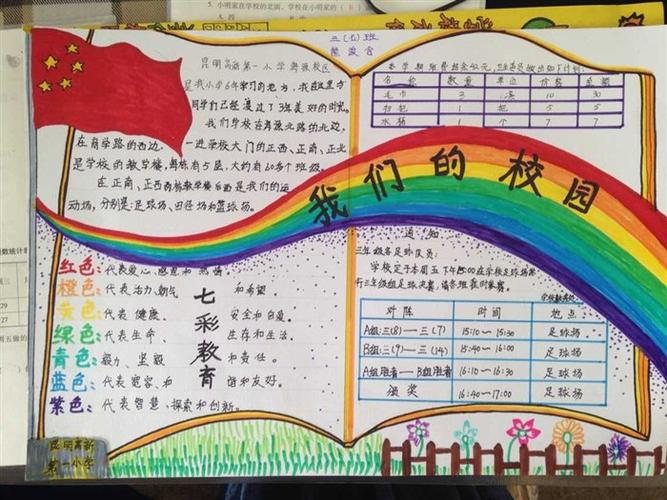 5、小明家在学校的北面
三(6)班
昆明高新第一小学
是我小学6年学习的地方
同学们已经度过了3年美好的时光。
我们学校在海源北路的北边,
在商学路的西边。一进学校大门的正西、正南、正北
是学校的教学楼,每栋有5层,大约有60多个班级。
在正南、正西两栋教学楼后面是我们的运
动场,分别是:足球场、田径场和篮球场。
本学期班费结余42元,
名称 数量 单位 价格 总额
毛巾 3 10 30
扫把 1 把 5 5
水桶 1 个 7 7
我们的校园
通知
三年级各足球队员:
学校定于本周五下午15:00在学校足球场举
行三年级组足球决赛,请各班级时参赛。
对阵 时间 地点
A组:三(8)—三(7) 15:10—15:30 足球场
B组:三(9)—三(14) 15:40—16:00 足球场
A组胜者—B组胜者 16:10—16:30 足球场
颁奖 16:40—17:00 足球场
七彩教育
红色:代表爱心、感恩和热情。
橙色:代表活力、朝气和希望。
黄色:代表健康、安全和自爱。
绿色:代表生命、生存和生活。
青色:毅力、坚毅和责任。
蓝色:代表宽容、和谐和友好。
紫色:代表智慧、探索和创新。
昆明高新
第一小学